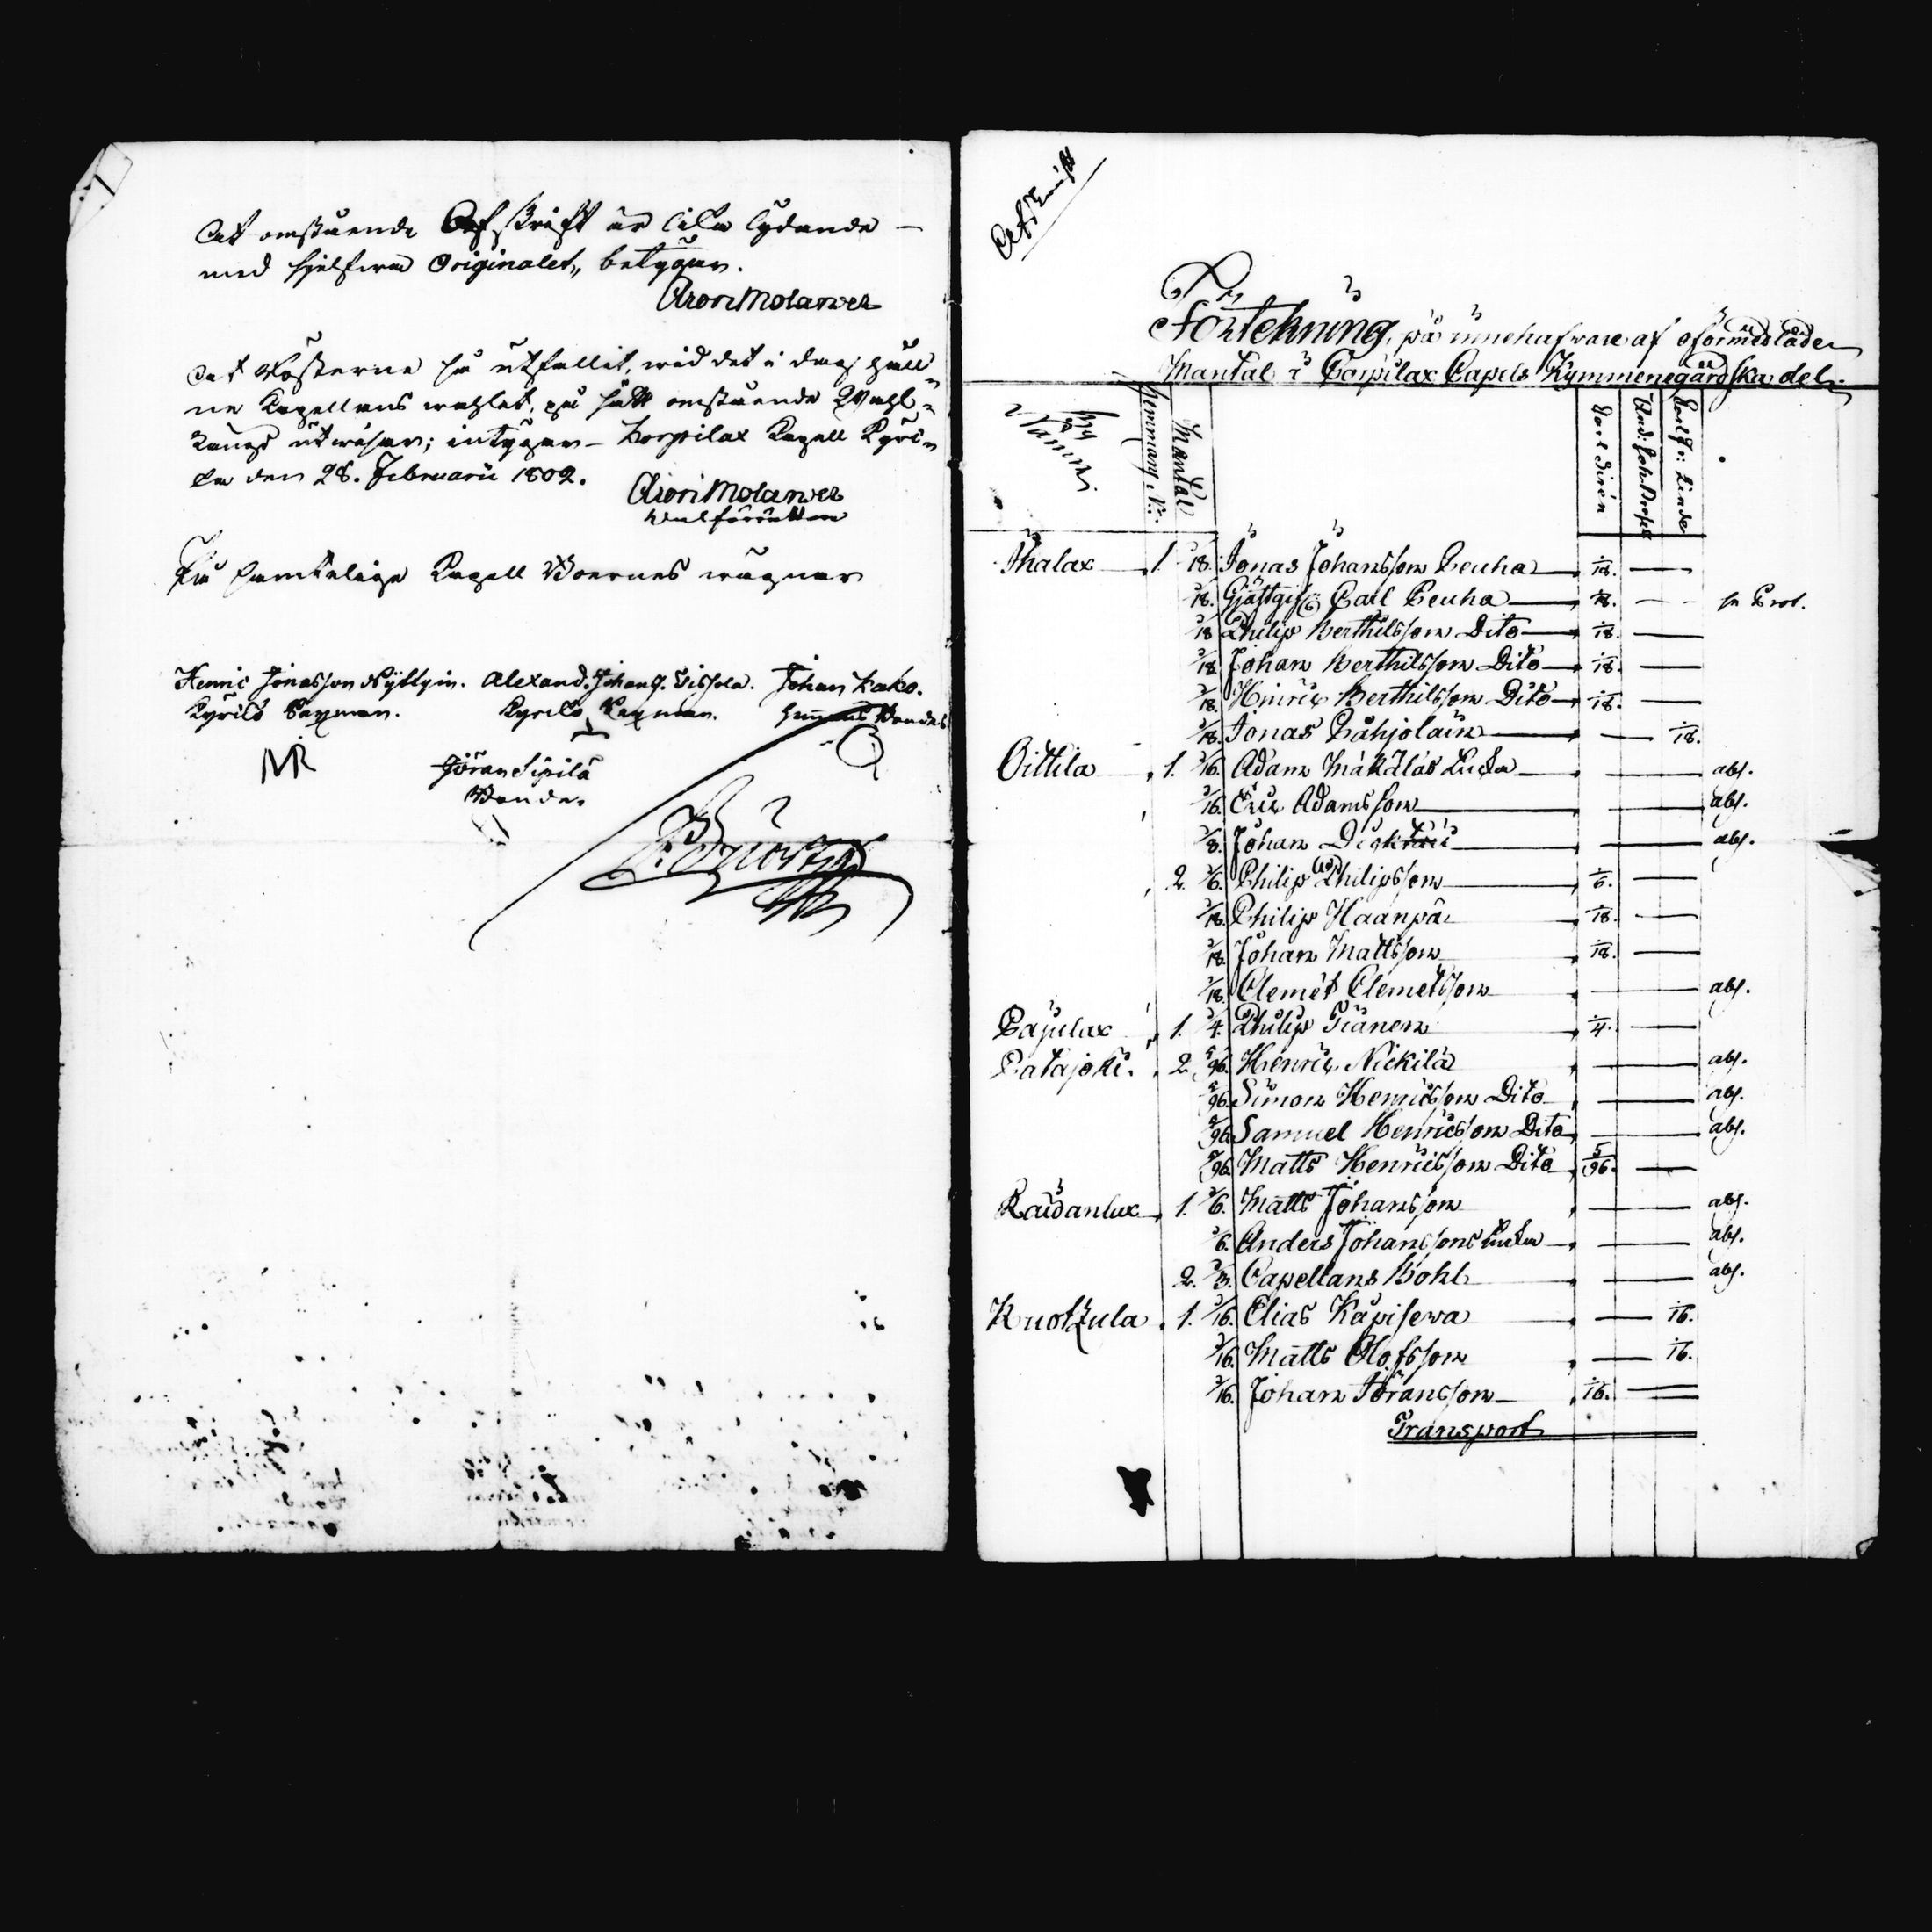 Att omstående Afskrift är lika lydande
med sjelfwa Originalet, betygar.
Aron Molander
At Rösterne så utfallit, wid det i dag håll-
ne Kapellans wahlet, på sätt omstående Wahl-
Längd utwisar; intygar Korpilax Kapell Kyrc-
ka den 28. Februarii 1802.
Aron Molander
Walförrättare
På samtelige Kapell Boernes wägnar
Henric Jonasson Nyttyin. Alexand. Johan Johan Kako.
Kyrko Kyrko
Jöran Sipilä
Bonde.
Afskrift
Förtekning, på innehafware af oförmedlade
Mantal i Corpilax Capels Kymmenegårdska del.
By Namn. Hemmans No. Mantal Carl And: Joh: Carl Fr: Linde
Thalax 1. 1/18. Jonas Johansson Peuha 1/18.
1/18. Gjästgif. Carl Peuha 1/18. se Prot.
1/18 Philip Berthilsson Dito 1/18.
1/18 Johan Berthilsson Dito 1/18.
1/18. Hinric Berthilsson Dito 1/18.
1/18. Jonas Påhjolain 1/18.
Oittila 1. 1/16. Adam Mäkäläs Encka abs.
1/16. Eric Adamsson abs.
1/8. Johan abs.
2. 1/6. Philip Philipsson 1/6.
1/18. Philip Haanpä 1/18.
1/18. Johan Mattsson 1/18.
1/18. Clemet Clemetsson abs.
Pajulax 1. 1/4. Philip Tiänen 1/4.
Patajoki. 2. 5/96. Henric Nickilä abs.
5/96. Simon Henricsson Dito abs.
5/96. Samuel Henricsson Dito abs.
5/96. Matts Henricsson Dito 5/96.
Raidanlax 1. 1/6. Matts Johansson abs.
1/6. Anders Johanssons Encka abs.
2. 1/3. Capellans Bohl abs.
Kuotzula 1. 1/16. Elias Kapisewa 1/16.
1/16. Matts Olofsson 1/16.
1/16. Johan Göransson 1/16.
Transport